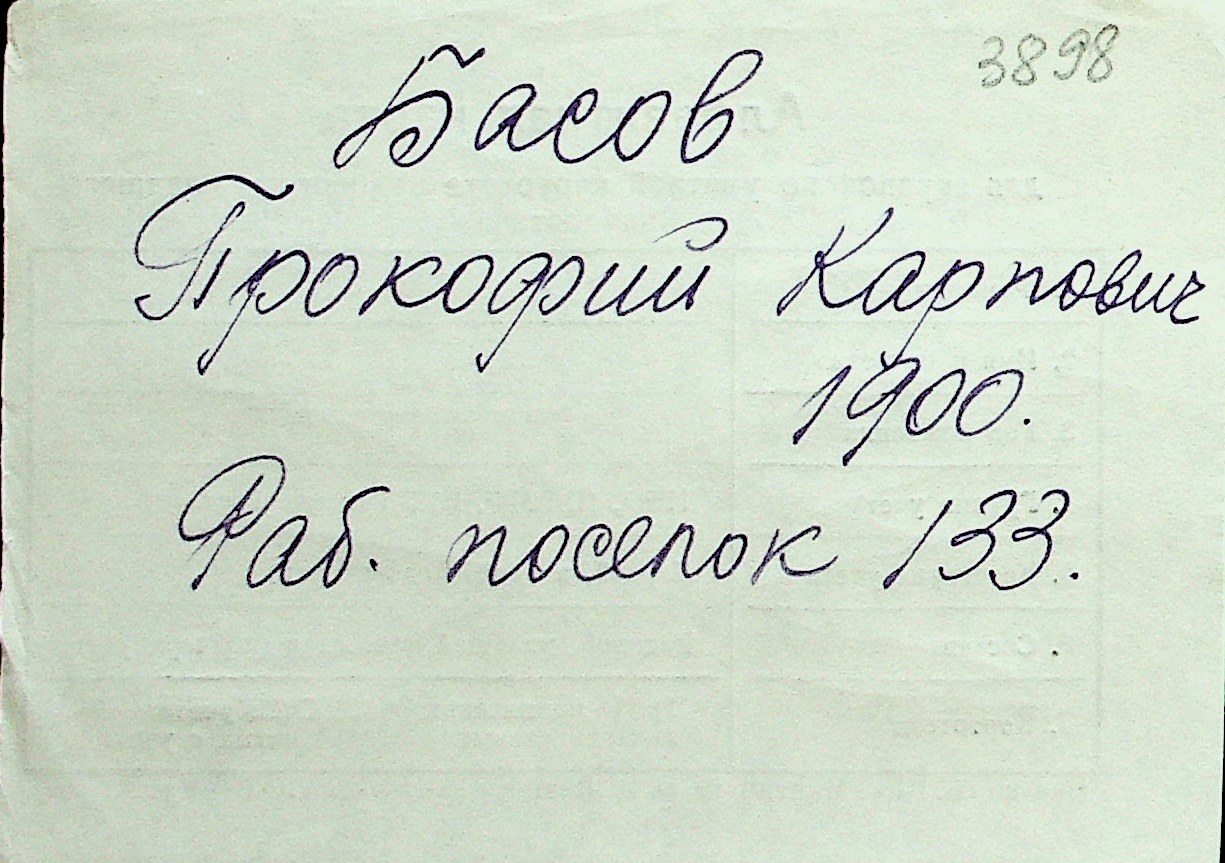 3898
Басов
Прокофий Карпович
1900.
Раб. поселок 133.